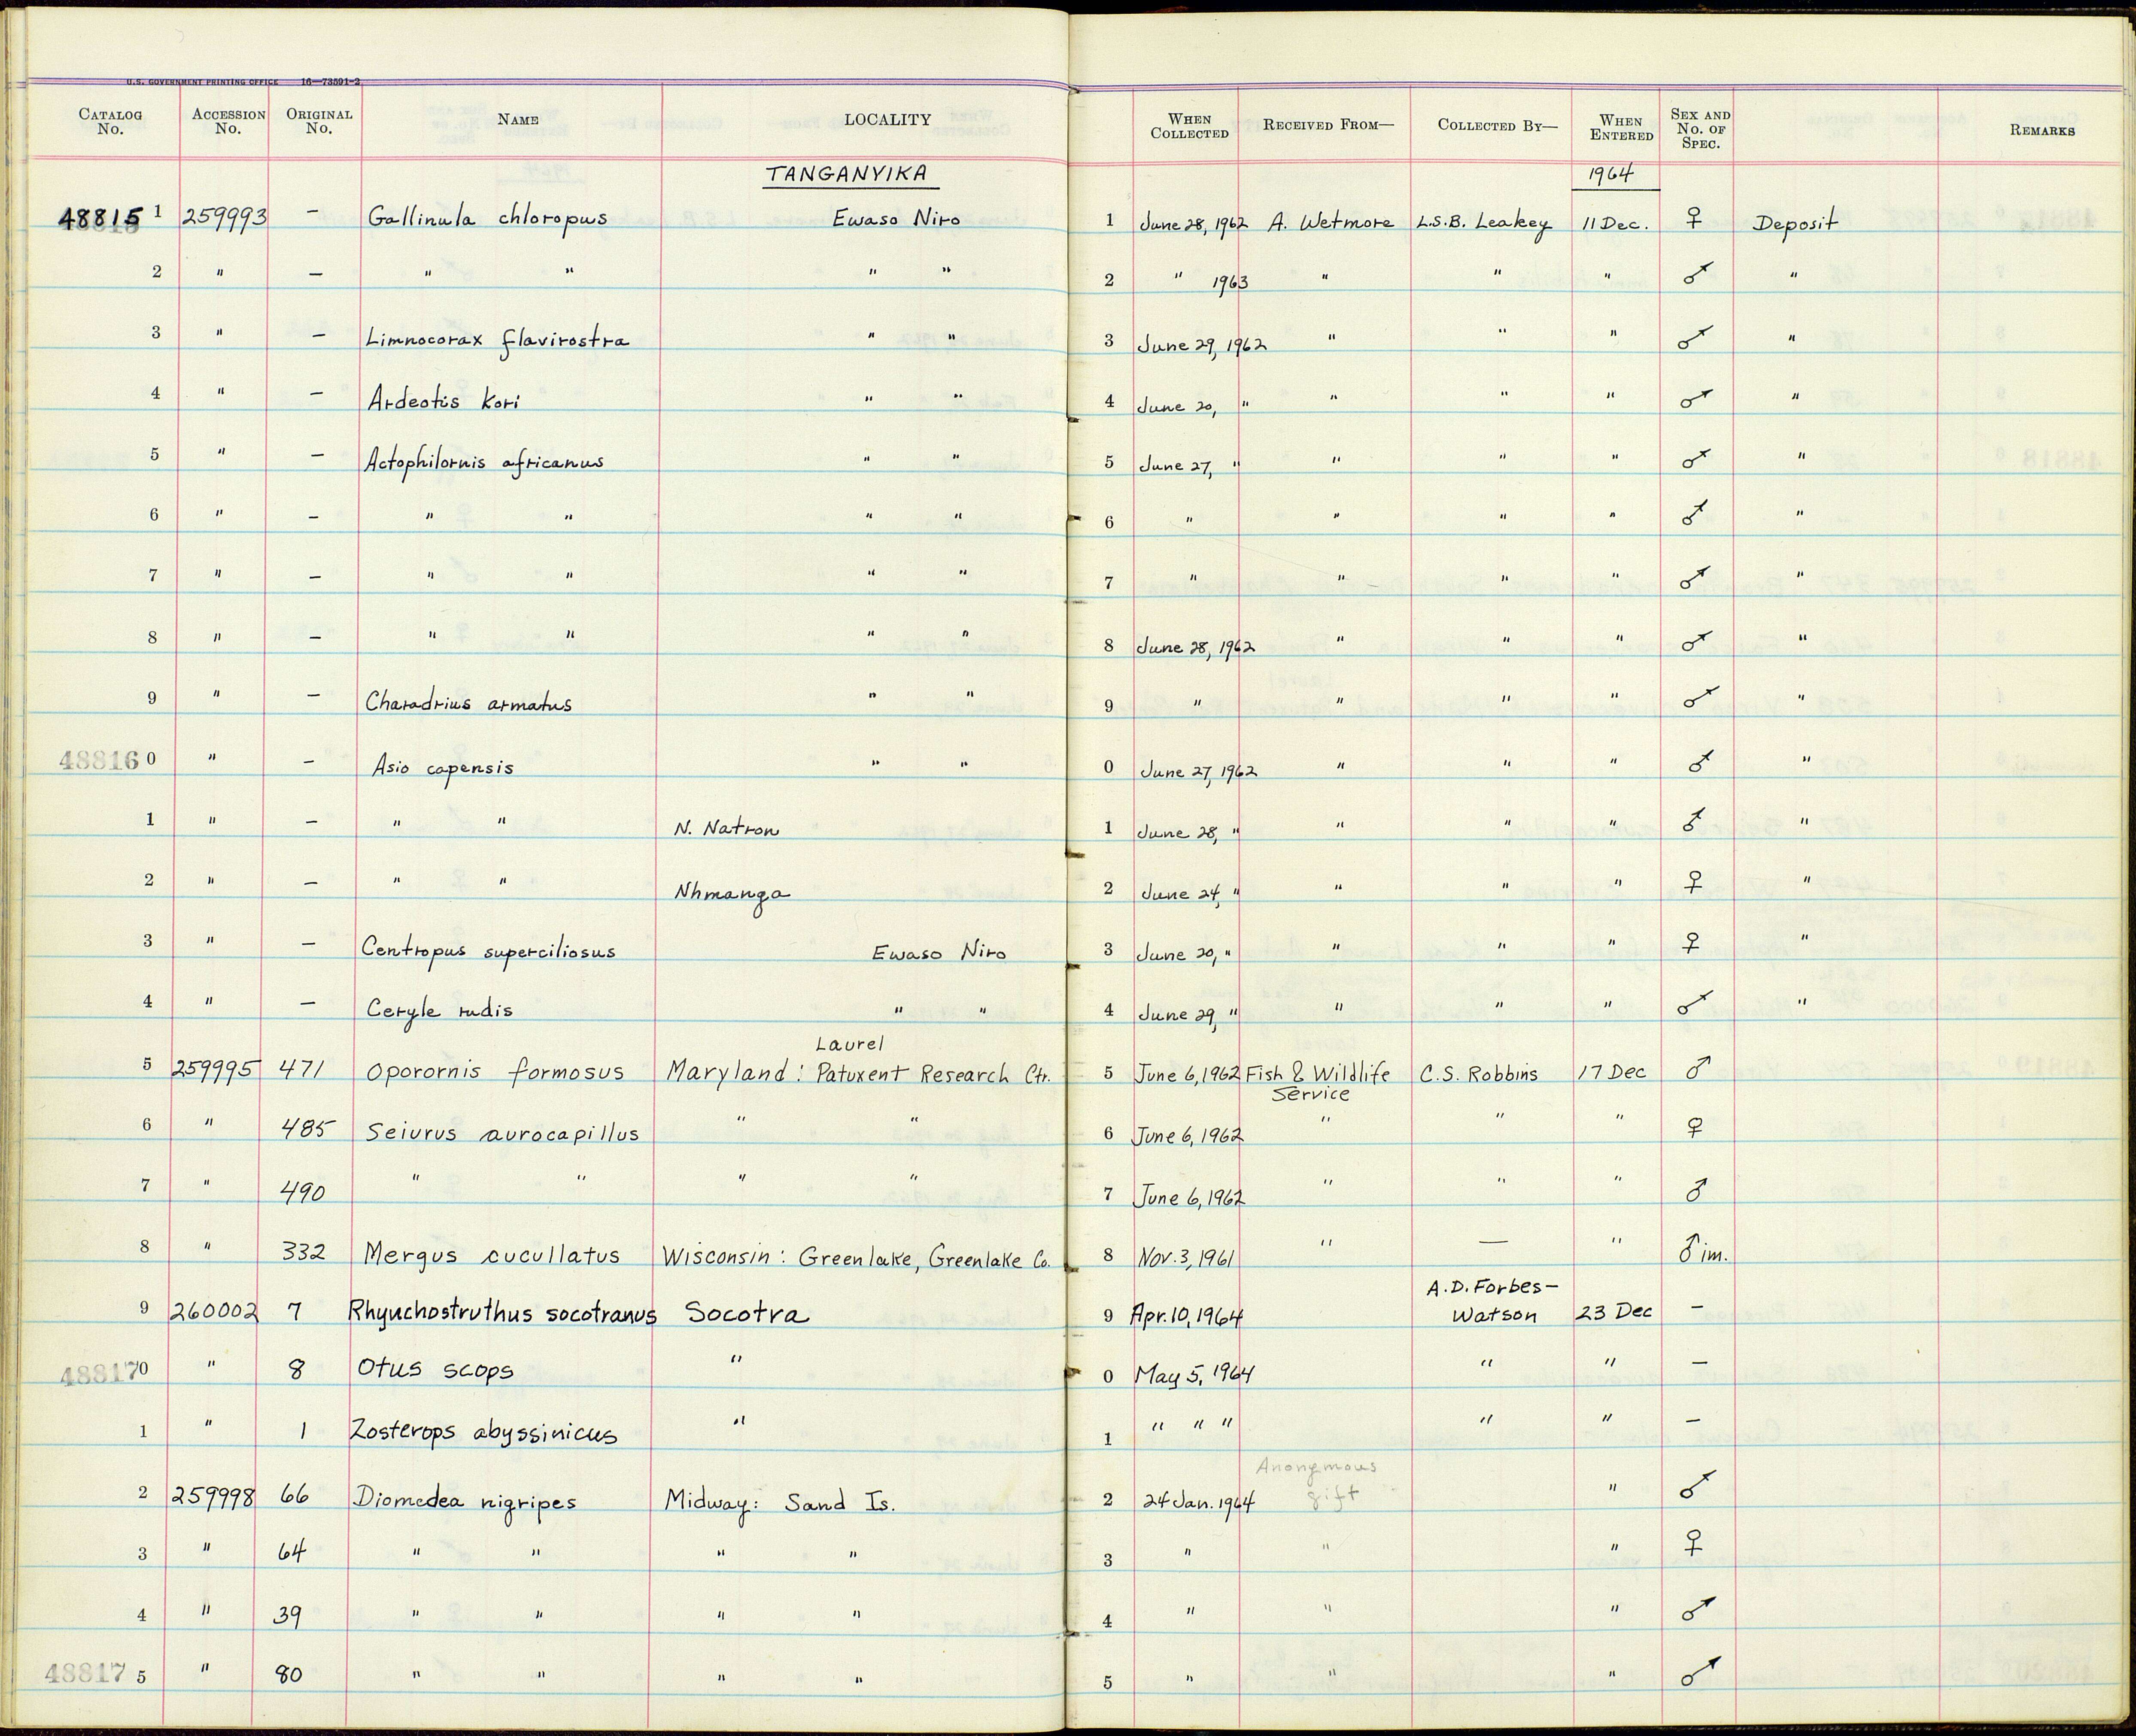 U.S. GOVERNMENT PRINTING OFFICE 16—73591-2
CATALOG No. ACCESSION No. ORIGINAL No. NAME LOCALITY WHEN COLLECTED RECEIVED FROM— COLLECTED BY— WHEN ENTERED SEX AND No. OF SPEC. REMARKS
TANGANYIKA 1964
48815 1 259993 — Gallinula chloropus Ewaso Niro 1 June 28, 1962 A. Wetmore L.S.B. Leakey 11 Dec. ♀ Deposit
2 " — " " " " 2 " 1963 " " " ♂ "
3 " — Limnocorax flavirostra " " 3 June 29, 1962 " " " ♂ "
4 " — Ardeotis kori " " 4 June 20, " " " " ♂ "
5 " — Actophilornis africanus " " 5 June 27, " " " " ♂ "
6 " — " " " " 6 " " " " ♂ "
7 " — " " " " 7 " " " " ♂ "
8 " — " " " " 8 June 28, 1962 " " " ♂ "
9 " — Charadrius armatus " " 9 " " " " ♂ "
48816 0 " — Asio capensis " " 0 June 27, 1962 " " " ♂ "
1 " — " " N. Natron 1 June 28, " " " " ♂ "
2 " — " " Nhmanga 2 June 24, " " " " ♀ "
3 " — Centropus superciliosus Ewaso Niro 3 June 20, " " " " ♀ "
4 " — Ceryle rudis " " 4 June 29, " " " " ♂ "
Laurel
5 259995 471 Oporornis formosus Maryland: Patuxent Research Ctr. 5 June 6, 1962 Fish & Wildlife Service C.S. Robbins 17 Dec ♂
6 " 485 Seiurus aurocapillus " " 6 June 6, 1962 " " " ♀
7 " 490 " " " " 7 June 6, 1962 " " " ♂
8 " 332 Mergus cucullatus Wisconsin: Greenlake, Greenlake Co. 8 Nov. 3, 1961 " — " ♂ im.
9 260002 7 Rhynchostruthus socotranus Socotra 9 Apr. 10, 1964 A.D. Forbes-Watson 23 Dec —
48817 0 " 8 Otus scops " 0 May 5, 1964 " " —
1 " 1 Zosterops abyssinicus " 1 " " " " " —
2 259998 66 Diomedea nigripes Midway: Sand Is. 2 24 Jan. 1964 Anonymous gift " ♂
3 " 64 " " " " 3 " " " ♀
4 " 39 " " " " 4 " " " ♂
48817 5 " 80 " " " " 5 " " " ♂